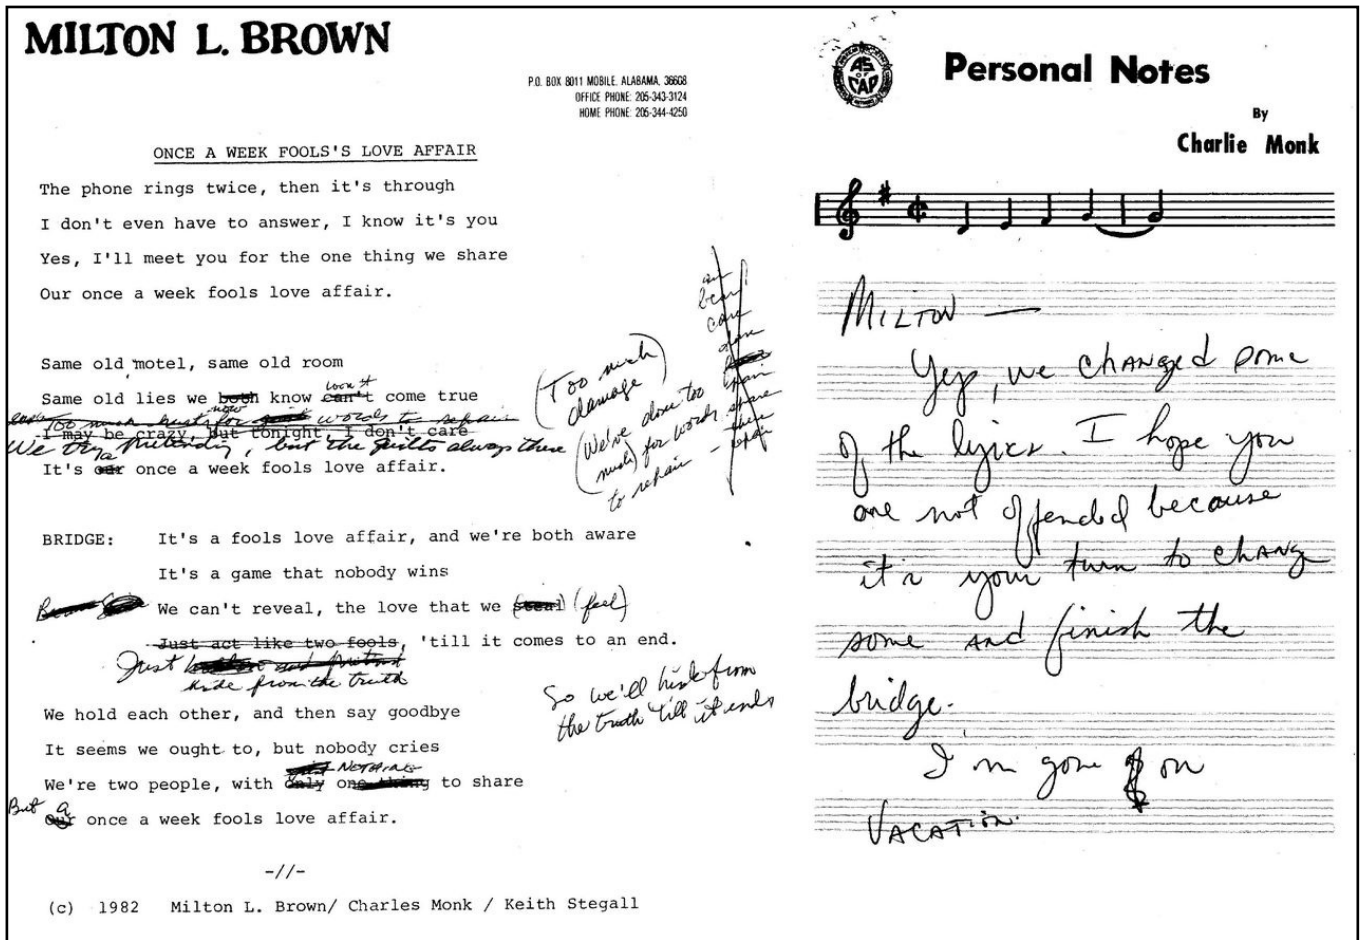 MILTON L. BROWN
P.O. BOX 8011 MOBILE, ALABAMA, 36608
OFFICE PHONE: 205-343-3124
HOME PHONE: 205-344-4250
ONCE A WEEK FOOLS'S LOVE AFFAIR
The phone rings twice, then it's through
I don't even have to answer, I know it's you
Yes, I'll meet you for the one thing we share
Our once a week fools love affair.
Same old motel, same old room
won't
Same old lies we both know can't come true
now
Too much hurt for words to repair
I may be crazy, but tonight I don't care
We try pretending, but the guilts always there
It's our once a week fools love affair.
(Too much
damage)
(We've done too
much) for words
to repair
air
bear
care
share
there
repair
BRIDGE: It's a fools love affair, and we're both aware
It's a game that nobody wins
We can't reveal, the love that we (steal) (feel)
Just act like two fools, 'till it comes to an end.
Just
hide from the truth
So we'll hide from
the truth 'till it ends
We hold each other, and then say goodbye
It seems we ought to, but nobody cries
NOTHING
We're two people, with only one thing to share
But a
our once a week fools love affair.
-//-
(c) 1982 Milton L. Brown/ Charles Monk / Keith Stegall
AS
OF
CAP
Personal Notes
By
Charlie Monk
MILTON —
Yep, we changed some
of the lyrics. I hope you
are not offended because
it's your turn to change
some and finish the
bridge.
I'm gone on
VACATION.